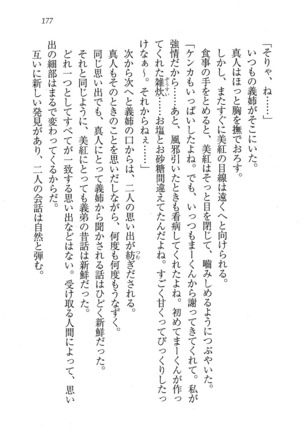 177
「そりゃ、ね……」
いつもの義姉がそこにいた。
真人はほっと胸を撫でおろす。
しかし、またすぐに美紅の目線は遠くへと向けられる。
食事の手をとめると、美紅はそっと目を閉じて、嚙みしめるようにつぶやいた。
「ケンカもいっぱいしたよね。でも、いっつもまーくんから謝ってきてくれて。私が
強情だから……あと、風邪引いたときも看病してくれたよね。初めてまーくんが作っ
てくれた雑炊……お塩とお砂糖間違えてたんだよね。すごく甘くってびっくりしたっ
けなぁ～。それからねぇ……」
次から次へと義姉の口からは、二人の思い出が紡ぎだされる。
真人もそのときのことを思いだしながら、何度も何度もうなずく。
同じ思い出でも、真人にとって義姉から聞かされる話はひどく新鮮だった。
それと同じように、美紅にとっても義弟の昔話は新鮮だった。
どれ一つとしてすべてが一致する思い出などはない。受け取る人間によって、思い
出の細部はまで変わってくるからだ。
互いに新しい発見があり、二人の会話は自然と弾む。